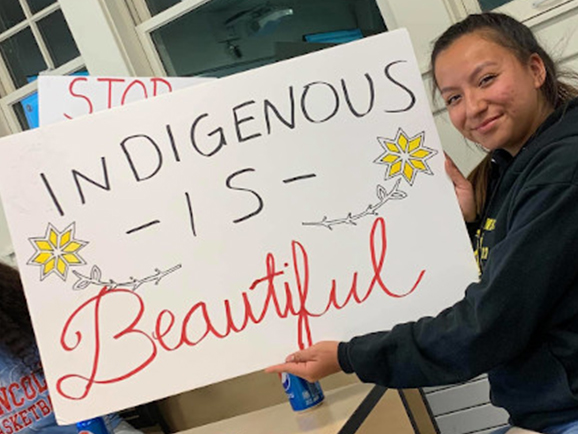 STOP
INDIGENOUS
- IS -
Beautiful
BASKETBALL